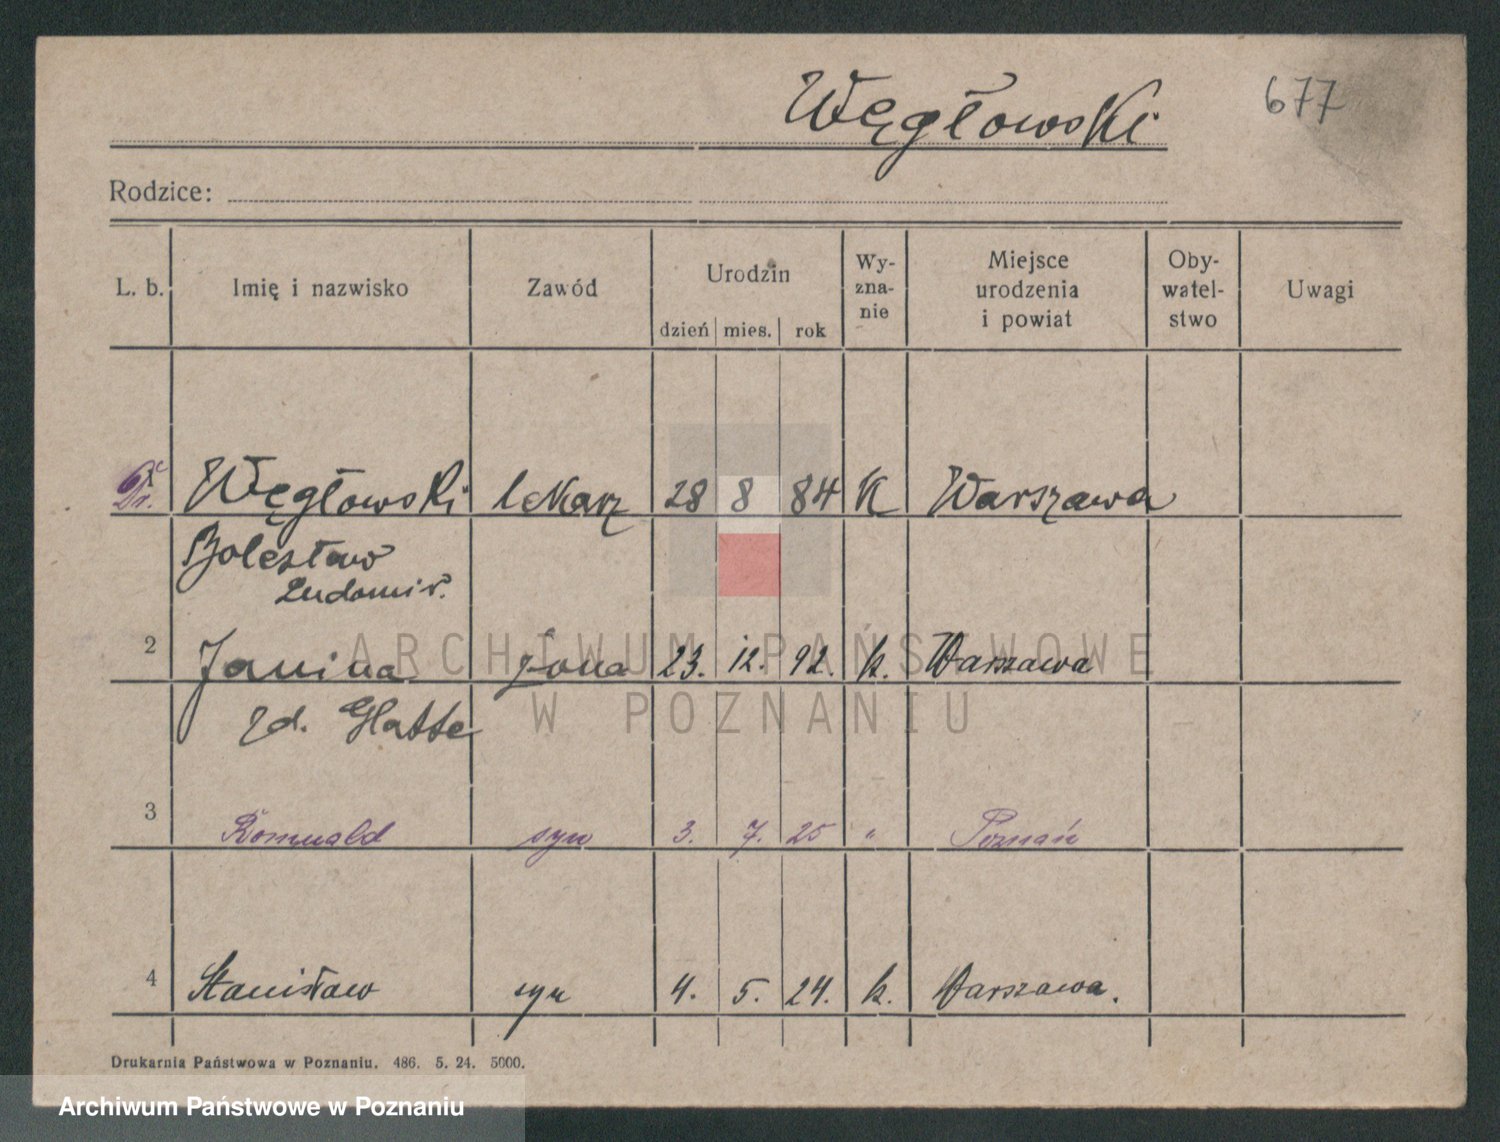 Węgłowski 677
Rodzice:
L. b. Imię i nazwisko Zawód Urodzin dzień mies. rok Wy-zna-nie Miejsce urodzenia i powiat Oby-watel-stwo Uwagi
Dr. Węgłowski lekarz 28 8 84 K Warszawa
Bolesław
Ludomir.
2 Janina żona 23. 12. 92. k. Warszawa
zd. Glatte
3 Romuald syn 3. 7. 25 " Poznań
4 Stanisław syn 4. 5. 24. k. Warszawa.
Drukarnia Państwowa w Poznaniu. 486. 5. 24. 5000.
ARCHIWUM PAŃSTWOWE
W POZNANIU
Archiwum Państwowe w Poznaniu